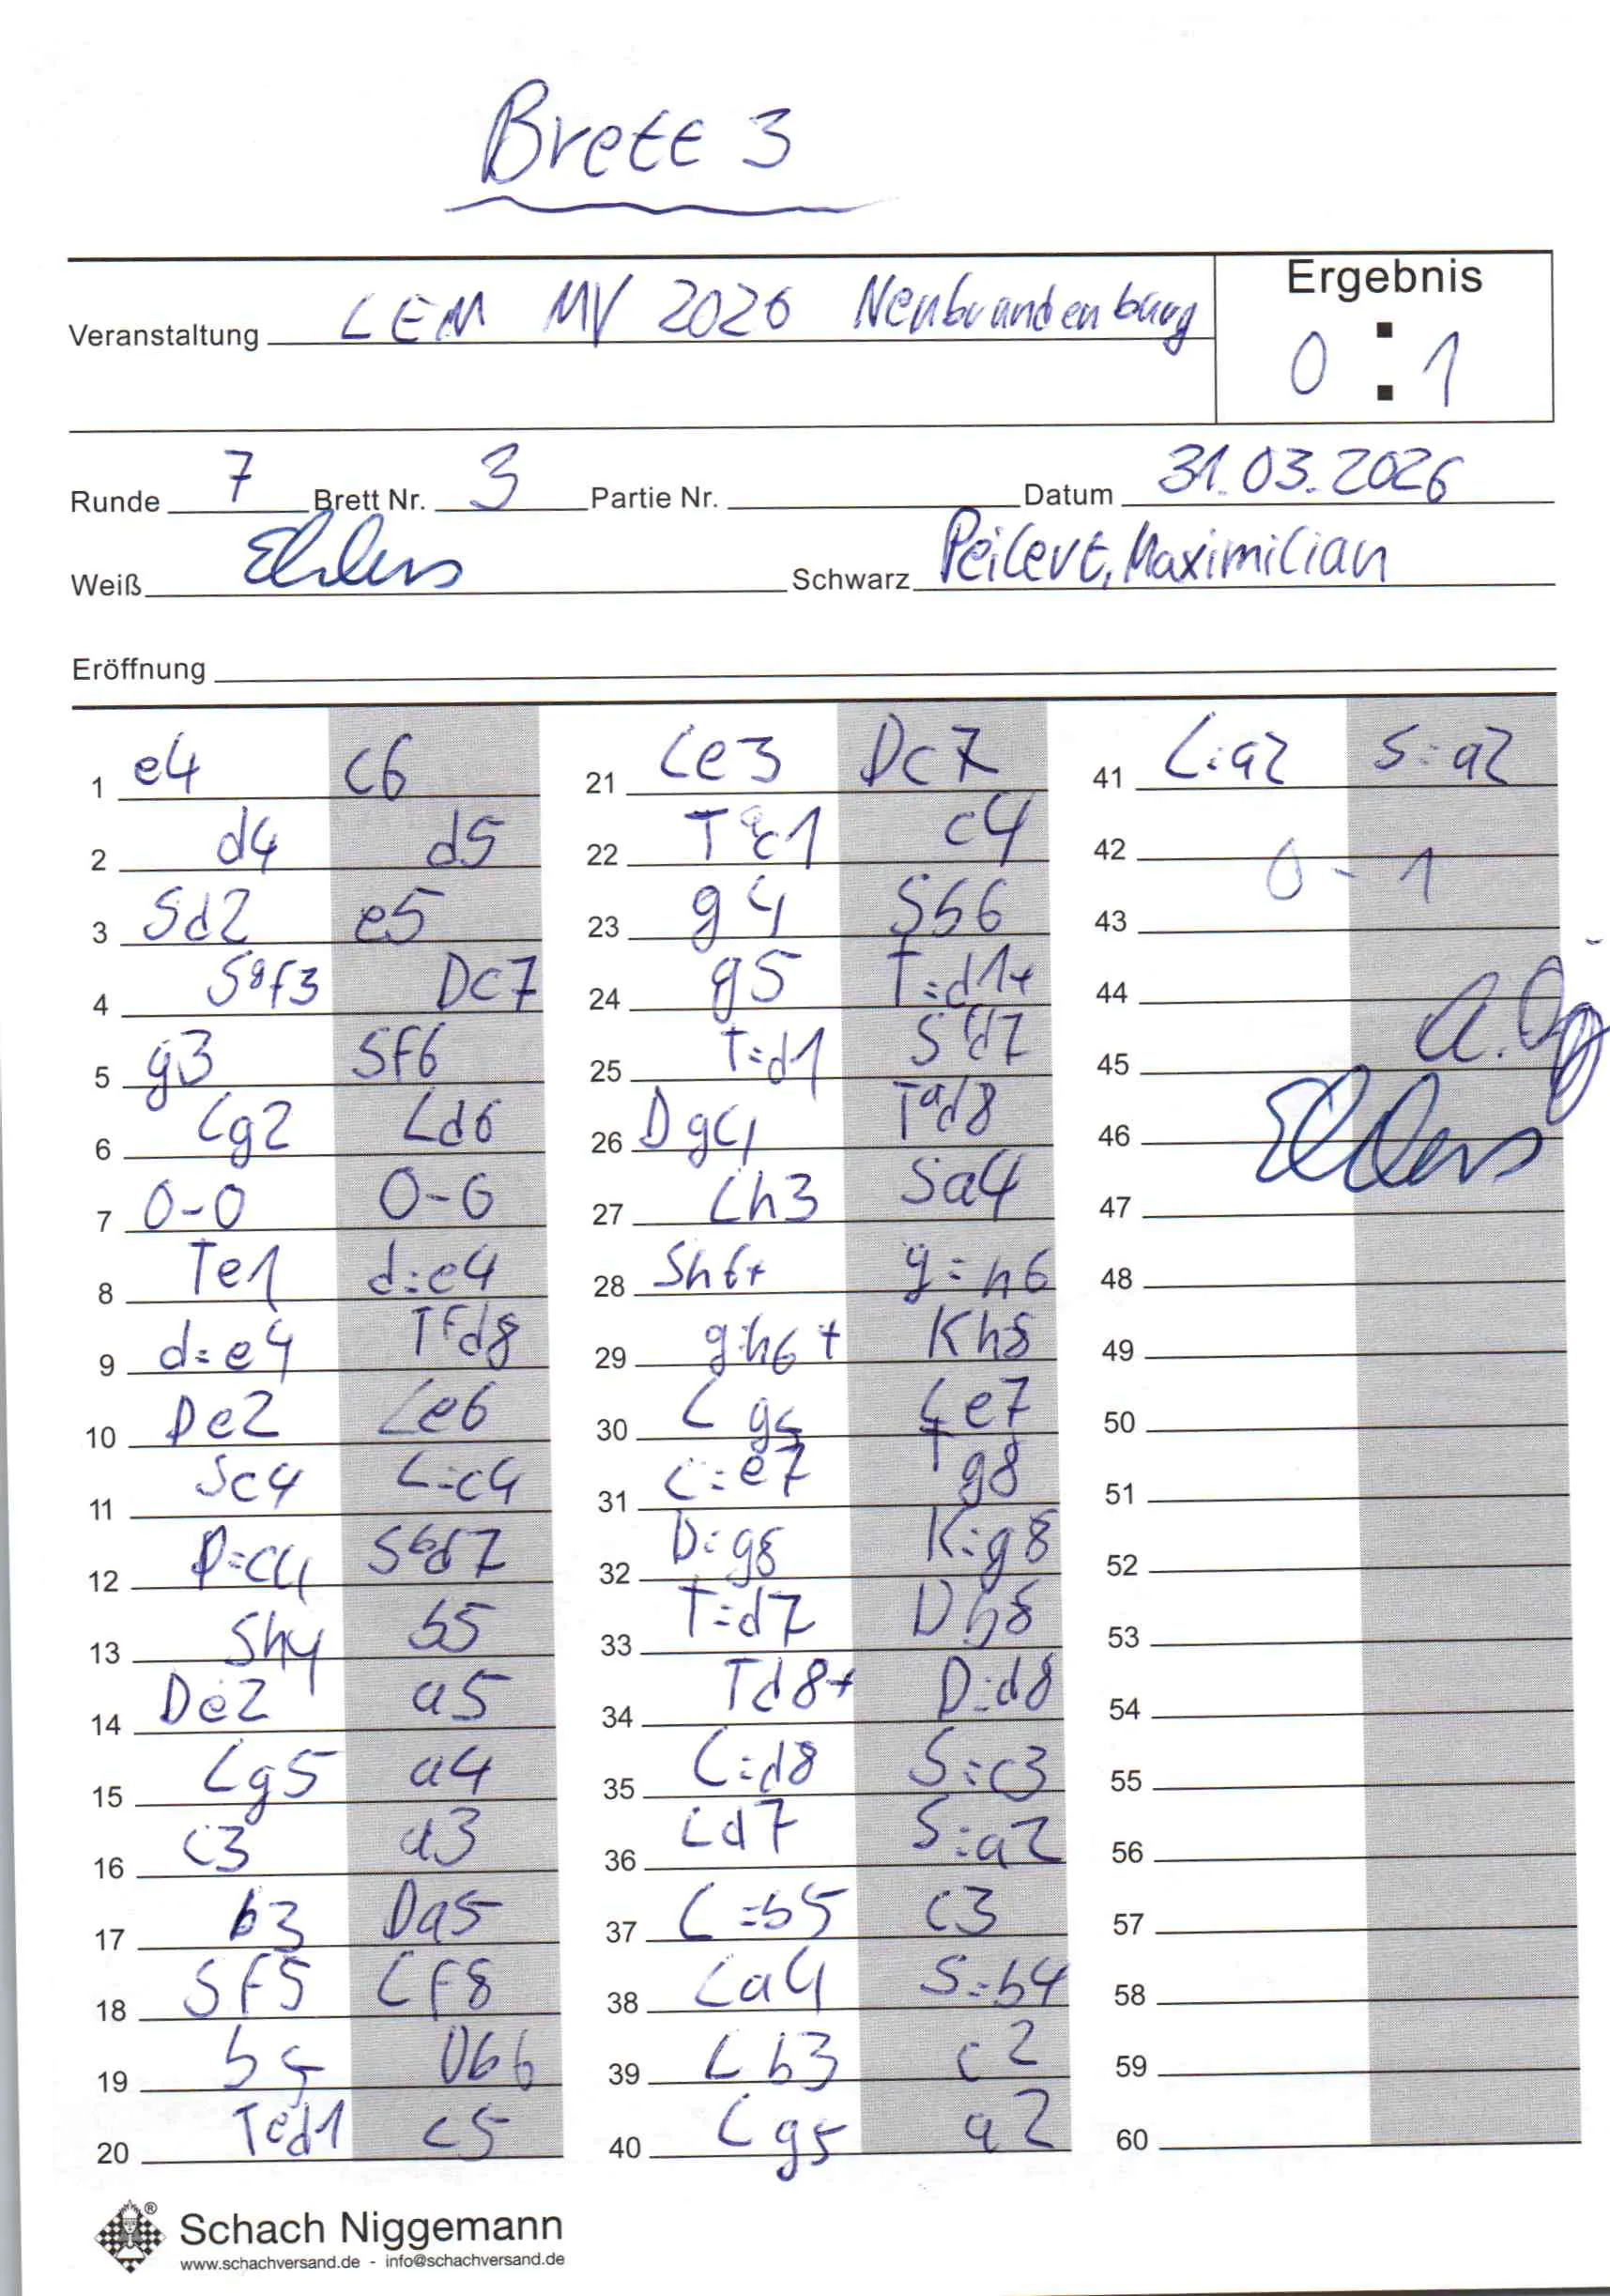 Brett 3
Veranstaltung LEM MV 2026 Neubrandenburg
Ergebnis
0 : 1
Runde 7 Brett Nr. 3 Partie Nr. Datum 31.03.2026
Weiß Ehlers Schwarz Peilert, Maximilian
Eröffnung
1 e4 c6
2 d4 d5
3 Sd2 e5
4 Sgf3 Dc7
5 g3 Sf6
6 Lg2 Ld6
7 0-0 0-0
8 Te1 d:e4
9 d:e4 Tfd8
10 De2 Le6
11 Sc4 L:c4
12 D:c4 Sbd7
13 Sh4 b5
14 De2 a5
15 Lg5 a4
16 c3 a3
17 b3 Da5
18 Sf5 Lf8
19 b4 Db6
20 Ted1 c5
21 Le3 Dc7
22 Tac1 c4
23 g4 Sb6
24 g5 T:d1+
25 T:d1 Sfd7
26 Dg4 Tad8
27 Lh3 Sa4
28 Sh6+ g:h6
29 g:h6+ Kh8
30 Lg5 Le7
31 L:e7 Tg8
32 D:g8 K:g8
33 T:d7 Db8
34 Td8+ D:d8
35 L:d8 S:c3
36 Ld7 S:a2
37 L:b5 c3
38 La4 S:b4
39 Lb3 c2
40 Lg5 a2
41 L:a2 S:a2
42 0 - 1
43
44
45
46 Ehlers
47
48
49
50
51
52
53
54
55
56
57
58
59
60
® Schach Niggemann
www.schachversand.de - info@schachversand.de